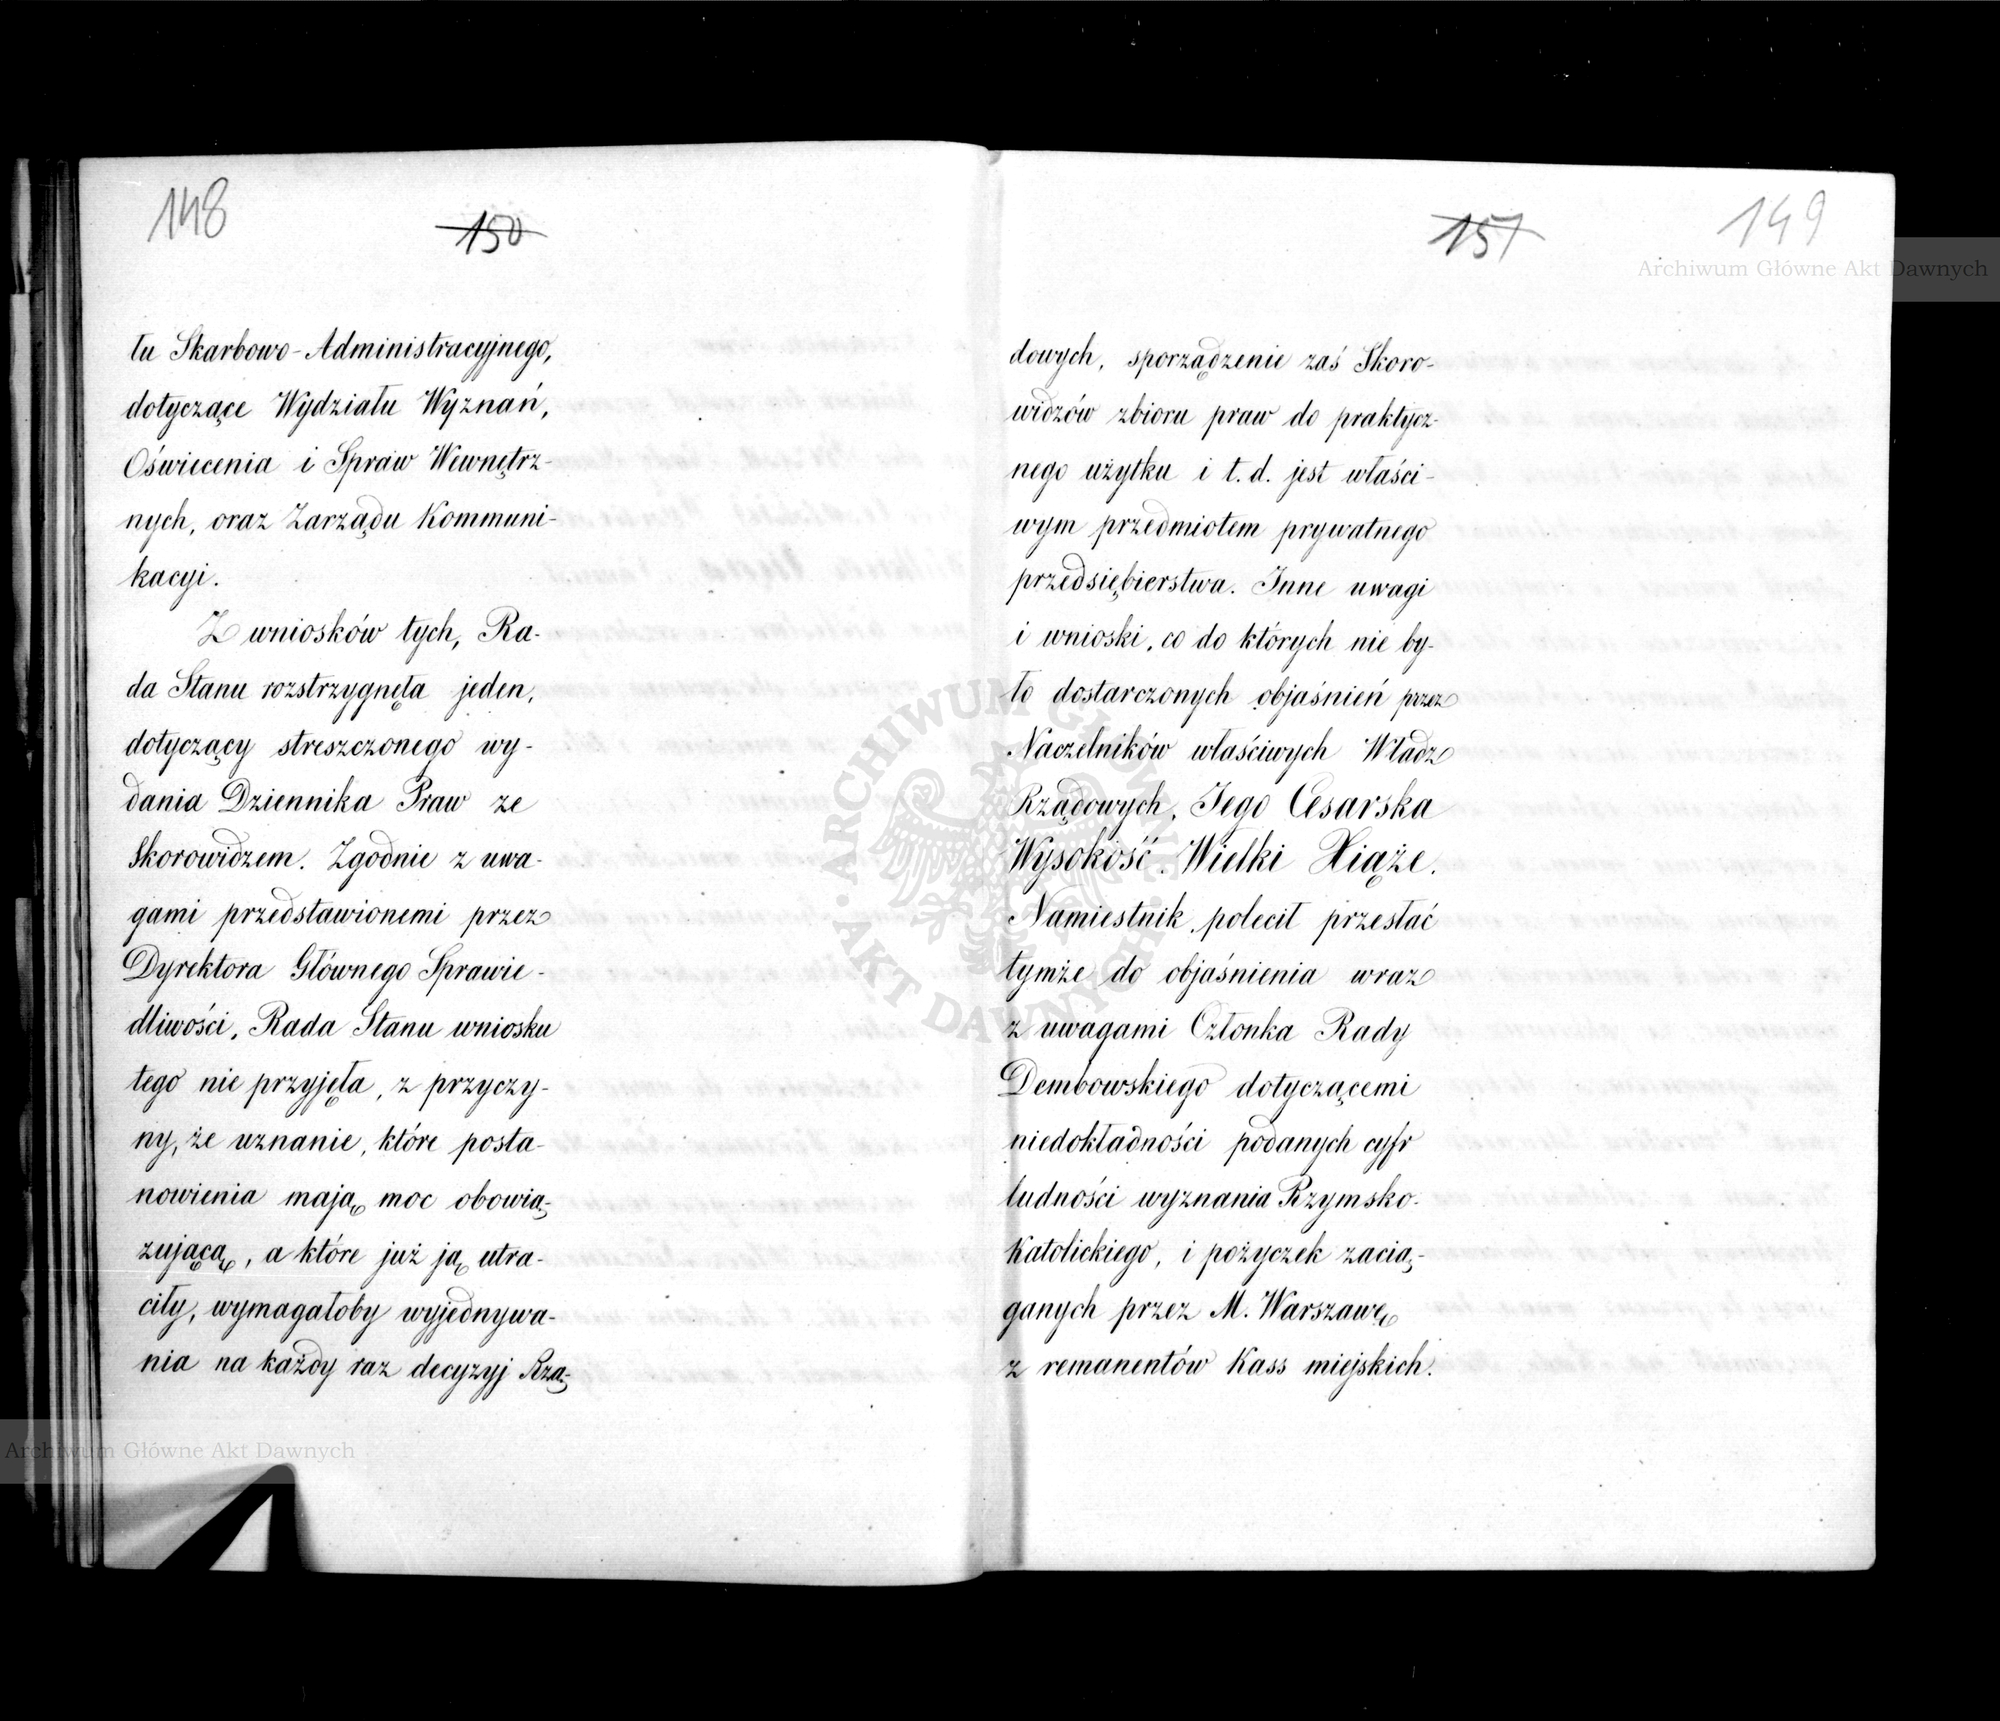 148
150
tu Skarbowo-Administracyjnego,
dotyczące Wydziału Wyznań,
Oświecenia i Spraw Wewnętrz-
nych, oraz Zarządu Kommuni-
kacyi.
Z wniosków tych, Ra-
da Stanu rozstrzygnęta jeden,
dotyczący streszczonego wy-
dania Dziennika Praw ze
Skorowidzem. Zgodnie z uwa-
gami przedstawionemi przez
Dyrektora Głównego Sprawie-
dliwości, Rada Stanu wniosku
tego nie przyjęła, z przyczy-
ny, że uznanie, które posta-
nowienia mają moc obowią-
zującą, a które już ją utra-
ciły, wymagałoby wyjednywa-
nia na każdy raz decyzyj Rzą-
151
149
Archiwum Główne Akt Dawnych
dowych, sporządzenie zaś Skoro-
widzów zbioru praw do praktycz-
nego użytku i t. d. jest właści-
wym przedmiotem prywatnego
przedsiębierstwa. Inne uwagi
i wnioski, co do których nie by-
ło dostarczonych objaśnień przez
Naczelników właściwych Władz
Rządowych, Jego Cesarska
Wysokość, Wielki Xiąże,
Namiestnik, polecił przesłać
tymże do objaśnienia wraz
z uwagami Członka Rady
Dembowskiego dotyczącemi
niedokładności podanych cyfr
ludności wyznania Rzymsko-
Katolickiego, i pożyczek zacią-
ganych przez M. Warszawę
z remanentów Kass miejskich.
ARCHIWUM GŁÓWNE
AKT DAWNYCH
Archiwum Główne Akt Dawnych